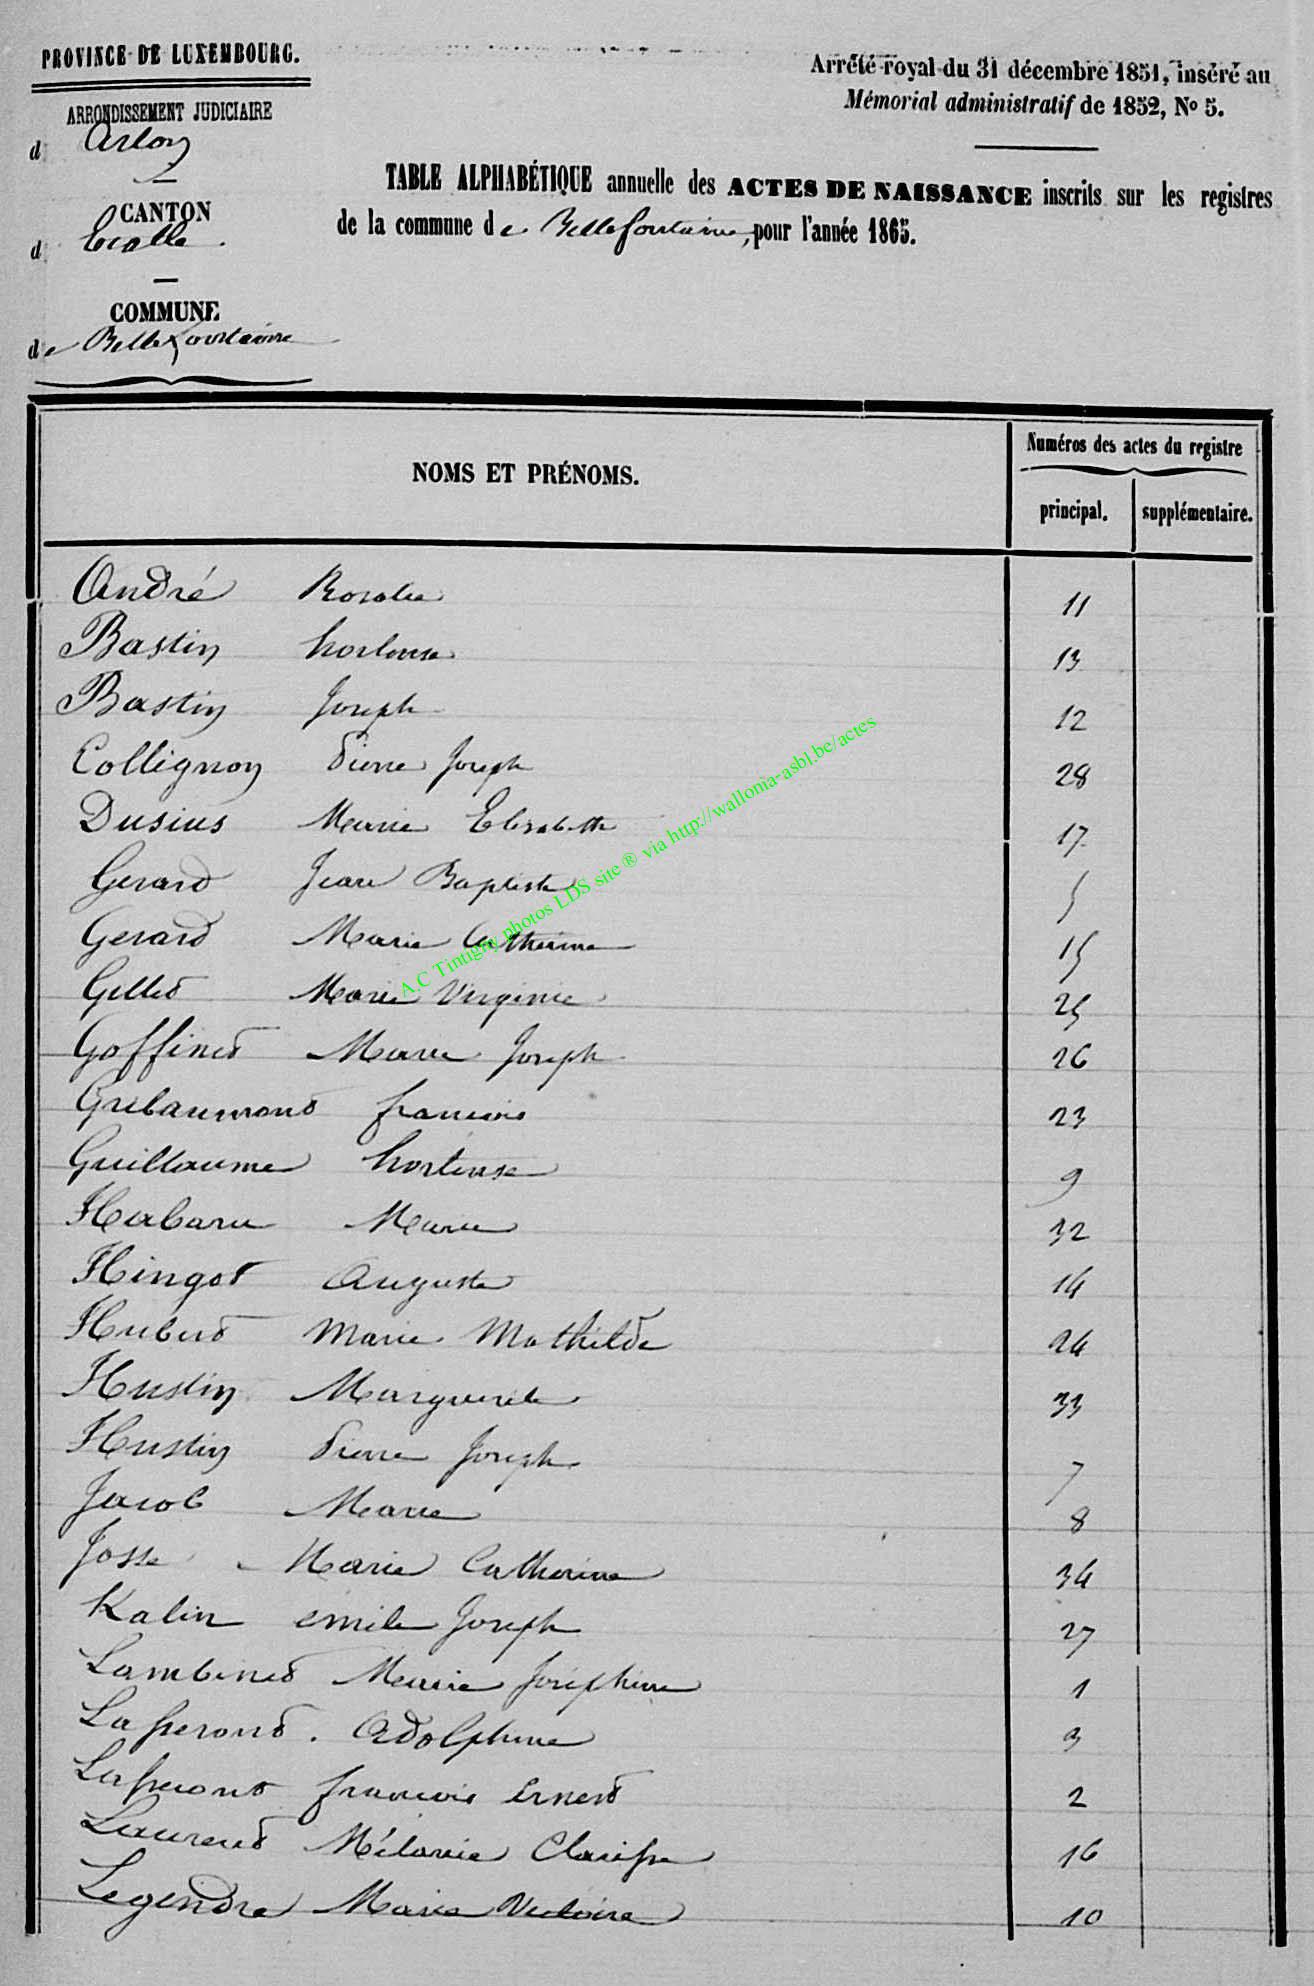 PROVINCE DE LUXEMBOURG.
ARRONDISSEMENT JUDICIAIRE
d Arlon
CANTON
d Etalle.
COMMUNE
de Bellefontaine
Arrêté royal du 31 décembre 1851, inséré au
Mémorial administratif de 1852, No 5.
TABLE ALPHABÉTIQUE annuelle des ACTES DE NAISSANCE inscrits sur les registres
de la commune de Bellefontaine, pour l'année 1865.
NOMS ET PRÉNOMS.
Numéros des actes du registre
principal.
supplémentaire.
André Rosalie 11
Bastin hortense 13
Bastin Joseph 12
Collignon Pierre Joseph 28
Dusius Marie Elisabeth 17
Gerard Jean Baptiste 5
Gerard Marie Catherine 15
Gillet Marie Virginie 25
Goffinet Marie Joseph 26
Gribaumont francois 23
Guillaume hortense 9
Habaru Marie 32
Hingot Auguste 14
Hubert Marie Mathilde 24
Hustin Marguerite 33
Hustin Pierre Joseph 7
Jacob Marie 8
Josse Marie Catherine 34
Kalin emile Joseph 27
Lambinet Marie Joséphine 1
Lafferont. Adolphine 3
Lafferont francois Ernest 2
Laurent Mélanie Clarisse 16
Legendre Marie Victoire 10
A.C Tintigny photos LDS site ® via http://wallonia-asbl.be/actes